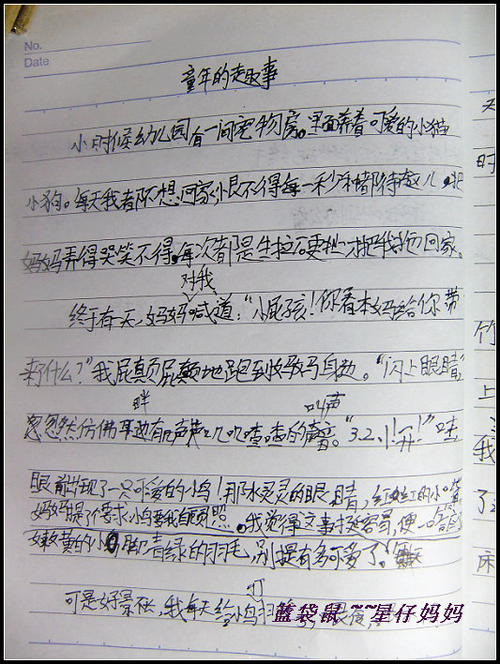 No.
Date
童年的趣事
小时候幼儿园有一间宠物房。里面养着可爱的小猫
小狗。每天我都不想回家,恨不得每一秒都待在那儿。把
妈妈弄得哭笑不得。每次都是生拉硬扯才把我拖回家。
对我
终于有一天,妈妈喊道:“小屁孩!你看本妈给你带
来了什么?”我屁颠屁颠地跑到妈妈身边。“闪上眼睛,
畔 叫声
忽然仿佛耳边有叽叽喳喳的声音。“3.2.1!开!”哇,
眼前出现了一只可爱的小鸟!那水灵灵的眼睛,红红的小嘴
妈妈提了个要求,小鸟要我自己照。我觉得这事挺容易,便一口答应
嫩黄的小脚青绿的羽毛,别提有多可爱了。
可是好景不长,我每天给小鸟
蓝袋鼠~~星仔妈妈
天
时
竹
上
我
了
床